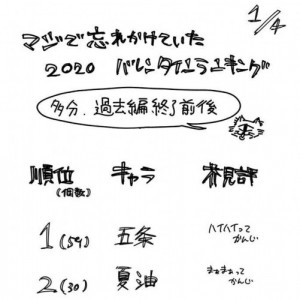 1/4
マジで忘れかけていた
2020 バレンタインランキング
多分、過去編終了前後
順位 キャラ 芥見評
(個数)
1(59) 五条 ハイハイってかんじ
2(30) 夏油 まぁまぁってかんじ